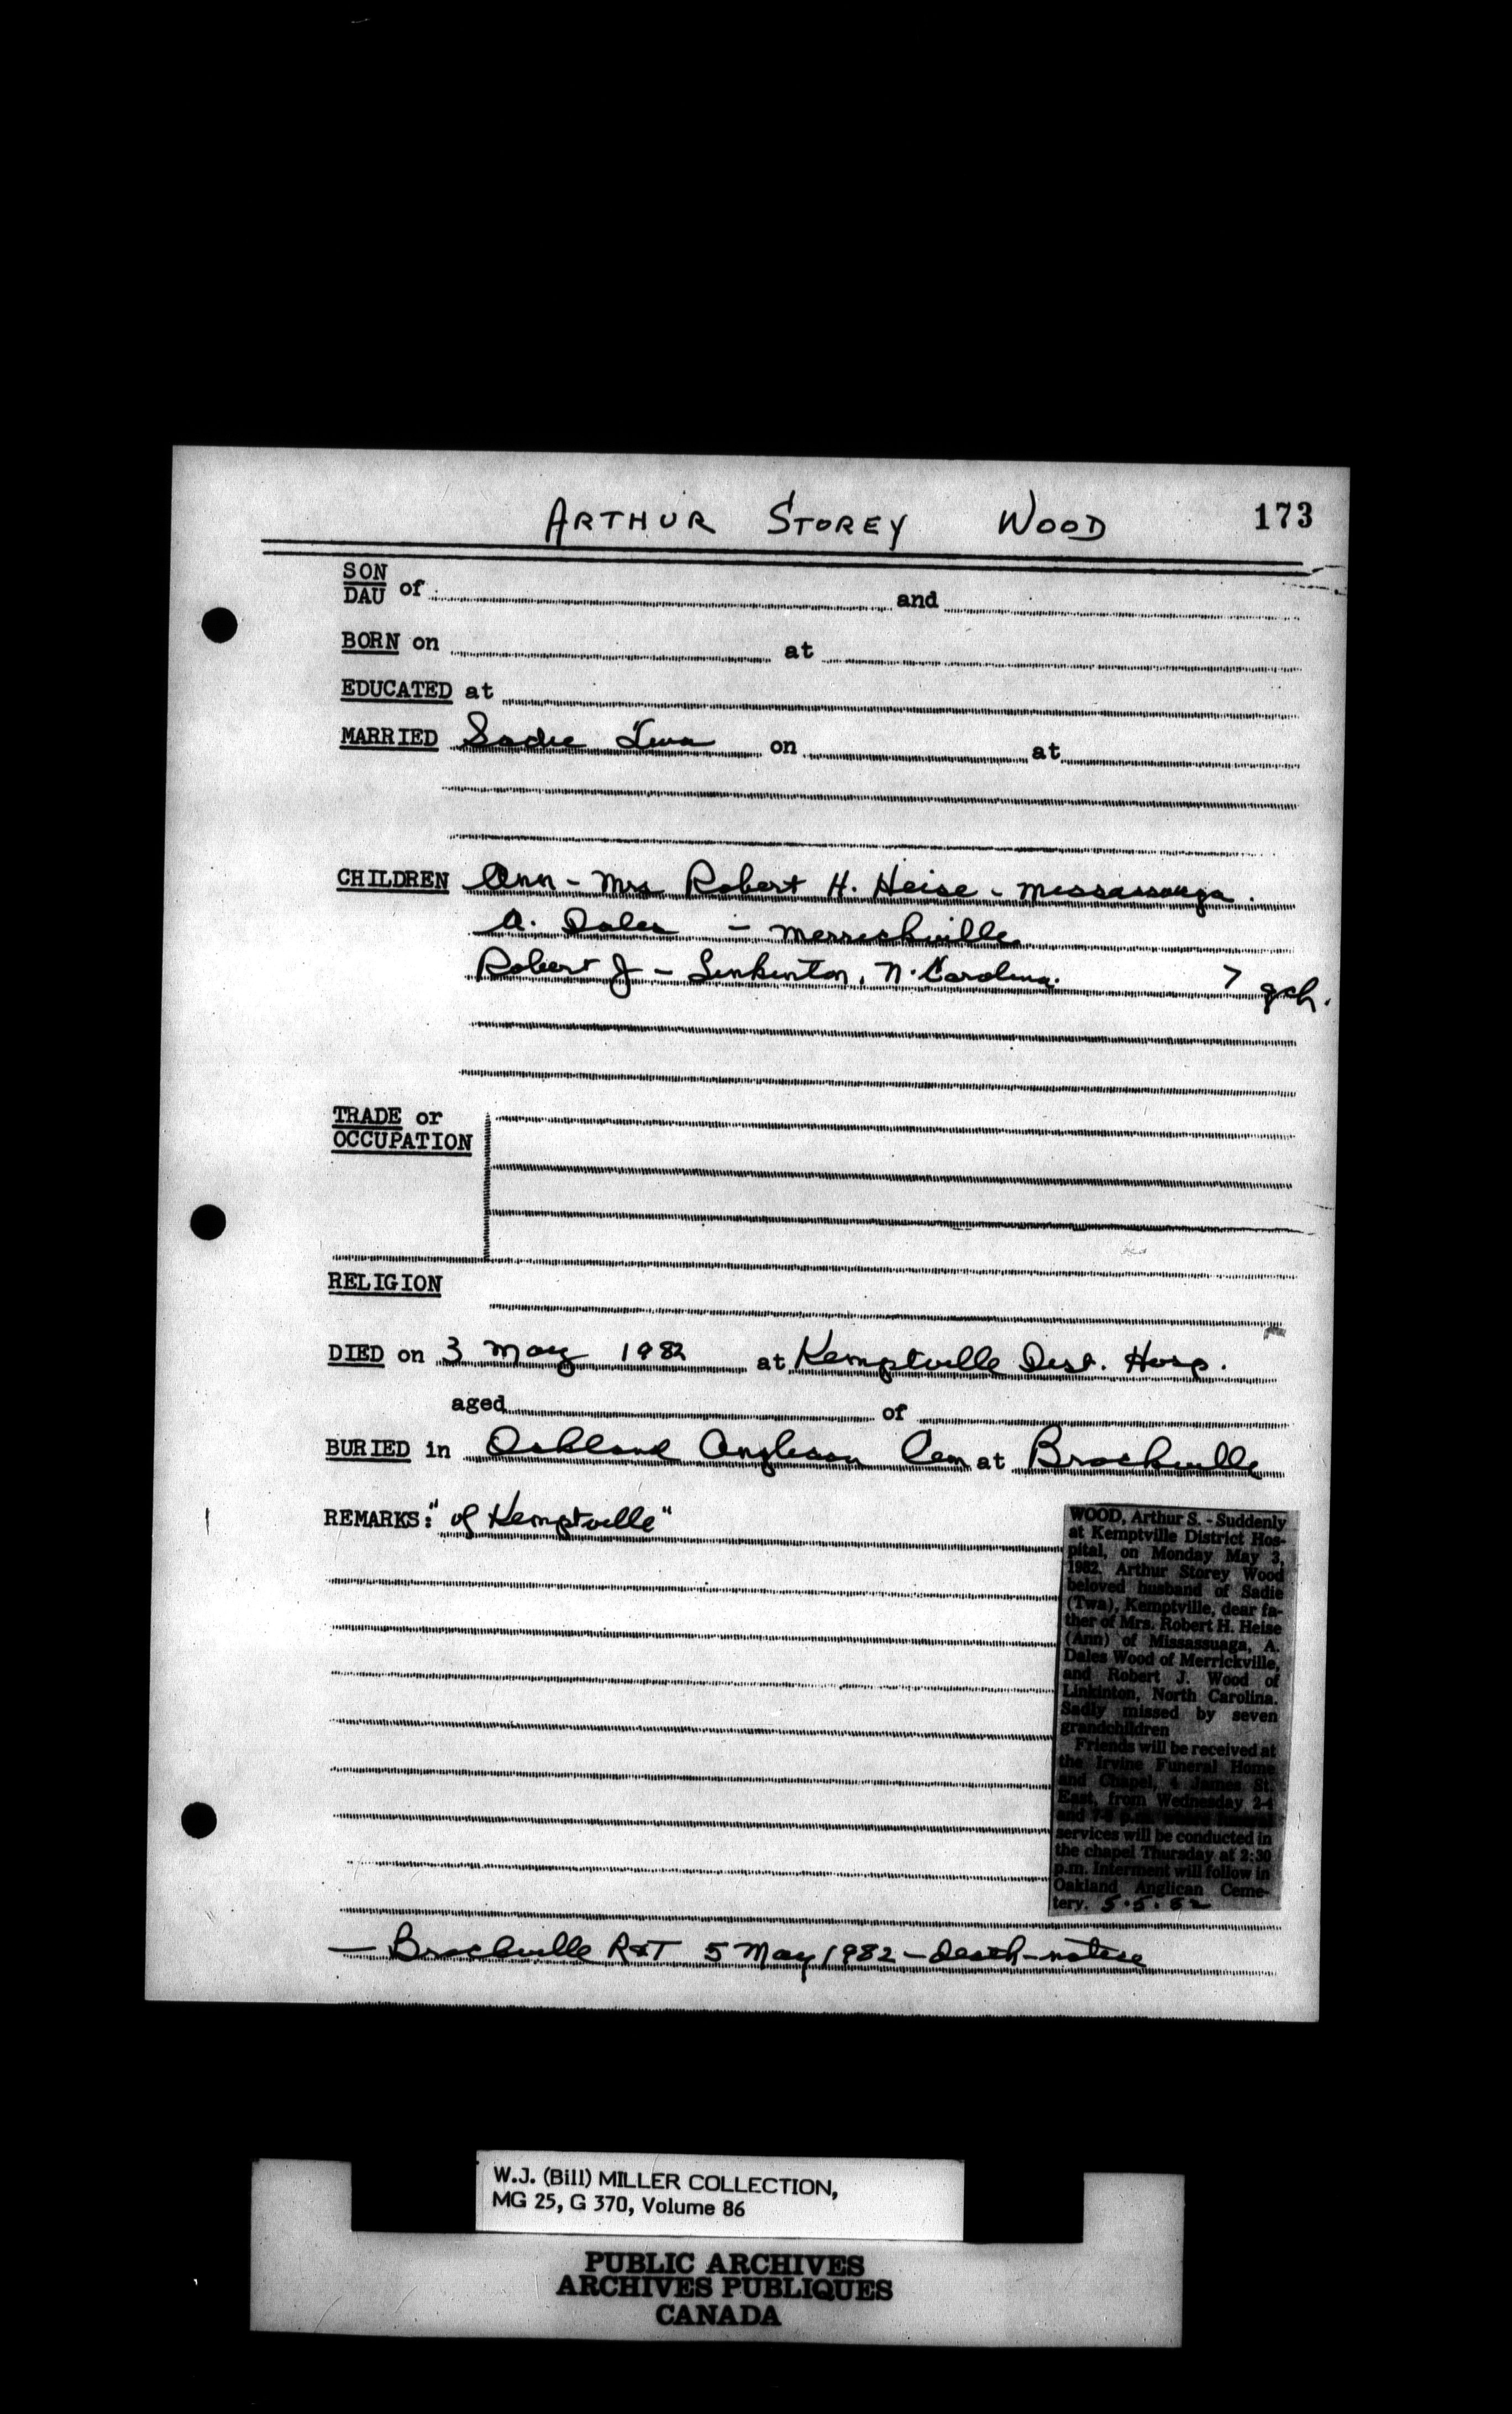 ARTHUR STOREY WOOD 173
SON
DAU of and
BORN on at
EDUCATED at
MARRIED Sadie Twa on at
CHILDREN Ann - Mrs Robert H. Heise - Missassauga.
A. Dales - Merrickville
Robert J - Linkinton, N. Carolina. 7 gch.
TRADE or
OCCUPATION
RELIGION
DIED on 3 May 1982 at Kemptville Dist. Hosp.
aged of
BURIED in Oakland Anglican Cem at Brockville
REMARKS: "of Kemptville"
WOOD, Arthur S. - Suddenly
at Kemptville District Hos-
pital, on Monday May 3,
1982. Arthur Storey Wood
beloved husband of Sadie
(Twa), Kemptville, dear fa-
ther of Mrs. Robert H. Heise
(Ann) of Missassuaga, A.
Dales Wood of Merrickville,
and Robert J. Wood of
Linkinton, North Carolina.
Sadly missed by seven
grandchildren
Friends will be received at
the Irvine Funeral Home
and Chapel, 4 James St.
East, from Wednesday 2-4
and 7-9 p.m.
services will be conducted in
the chapel Thursday at 2:30
p.m. Interment will follow in
Oakland Anglican Ceme-
tery. 5.5.82
- Brockville R&T 5 May 1982 - death-notice
W.J. (Bill) MILLER COLLECTION,
MG 25, G 370, Volume 86
PUBLIC ARCHIVES
ARCHIVES PUBLIQUES
CANADA